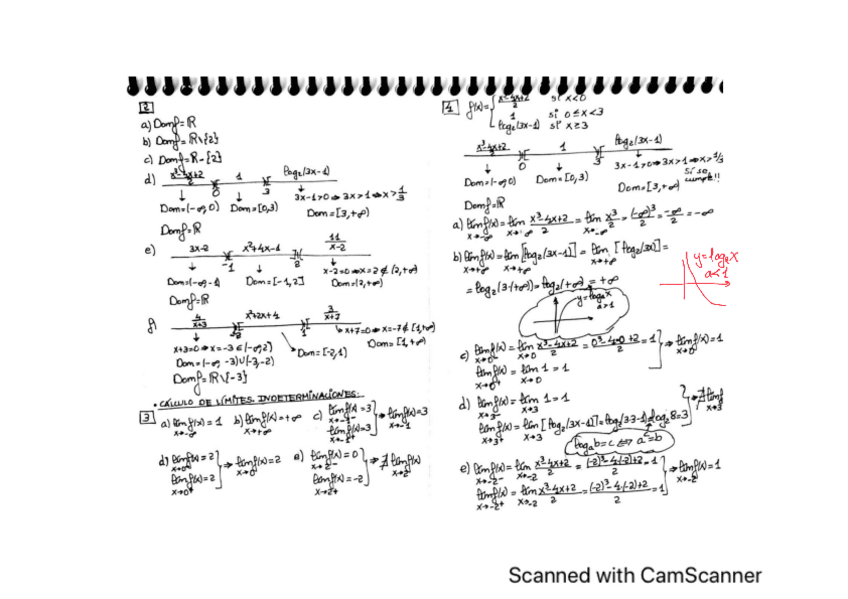 2
a) Domf=ℝ
b) Domf=ℝ\{2}
c) Domf=ℝ-{2}
d) x³-4x+2/2 1 log₂(3x-1)
0 3
3x-1>0⇒3x>1⇒x>1/3
Dom=(-∞,0) Dom=[0,3) Dom=[3,+∞)
Domf=ℝ
e) 3x-2 x²+4x-1 11/x-2
-1 2
x-2=0⇒x=2∉(2,+∞)
Dom=(-∞,-1) Dom=[-1,2] Dom=(2,+∞)
Domf=ℝ
f) 4/x+3 x²+2x+1 3/x+7
-2 1
x+3=0⇒x=-3∈(-∞,-2) x+7=0⇒x=-7∉[1,+∞)
Dom=(-∞,-3)∪(-3,-2) Dom=[-2,1) Dom=[1,+∞)
Domf=ℝ\{-3}
• CÁLCULO DE LÍMITES. INDETERMINACIONES:
3 a) lím f(x)=1 x→-∞ b) lím f(x)=+∞ x→+∞ c) lím f(x)=3 x→-1⁻ lím f(x)=3 x→-1⁺ ⇒ lím f(x)=3 x→-1
d) lím f(x)=2 x→0⁻ lím f(x)=2 x→0⁺ ⇒ lím f(x)=2 x→0 e) lím f(x)=0 x→2⁻ lím f(x)=-2 x→2⁺ ⇒ ∄ lím f(x) x→2
4 f(x)= x³-4x+2/2 si x<0
1 si 0≤x<3
log₂(3x-1) si x≥3
x³-4x+2/2 1 log₂(3x-1)
0 3
3x-1>0⇒3x>1⇒x>1/3
Sí se cumple!!
Dom=(-∞,0) Dom=[0,3) Dom=[3,+∞)
Domf=ℝ
a) lím f(x) x→-∞ = lím x→-∞ x³-4x+2/2 = lím x→-∞ x³/2 = (-∞)³/2 = -∞/2 = -∞
b) lím f(x) x→+∞ = lím x→+∞ [log₂(3x-1)] = lím x→+∞ [log₂(3x)] =
= log₂(3·(+∞)) = log₂(+∞) = +∞
y=logₐx
a>1
y=logₐx
a<1
c) lím f(x) x→0⁻ = lím x→0 x³-4x+2/2 = 0³-4·0+2/2 = 1
lím f(x) x→0⁺ = lím x→0 1=1 ⇒ lím f(x)=1 x→0
d) lím f(x) x→3⁻ = lím x→3 1=1
lím f(x) x→3⁺ = lím x→3 [log₂(3x-1)] = log₂(3·3-1)=log₂8=3 ⇒ ∄ lím f x→3
logₐb=c⇔aᶜ=b
e) lím f(x) x→-2⁻ = lím x→-2 x³-4x+2/2 = (-2)³-4·(-2)+2/2 = 1
lím f(x) x→-2⁺ = lím x→-2 x³-4x+2/2 = (-2)³-4·(-2)+2/2 = 1 ⇒ lím f(x)=1 x→-2
Scanned with CamScanner